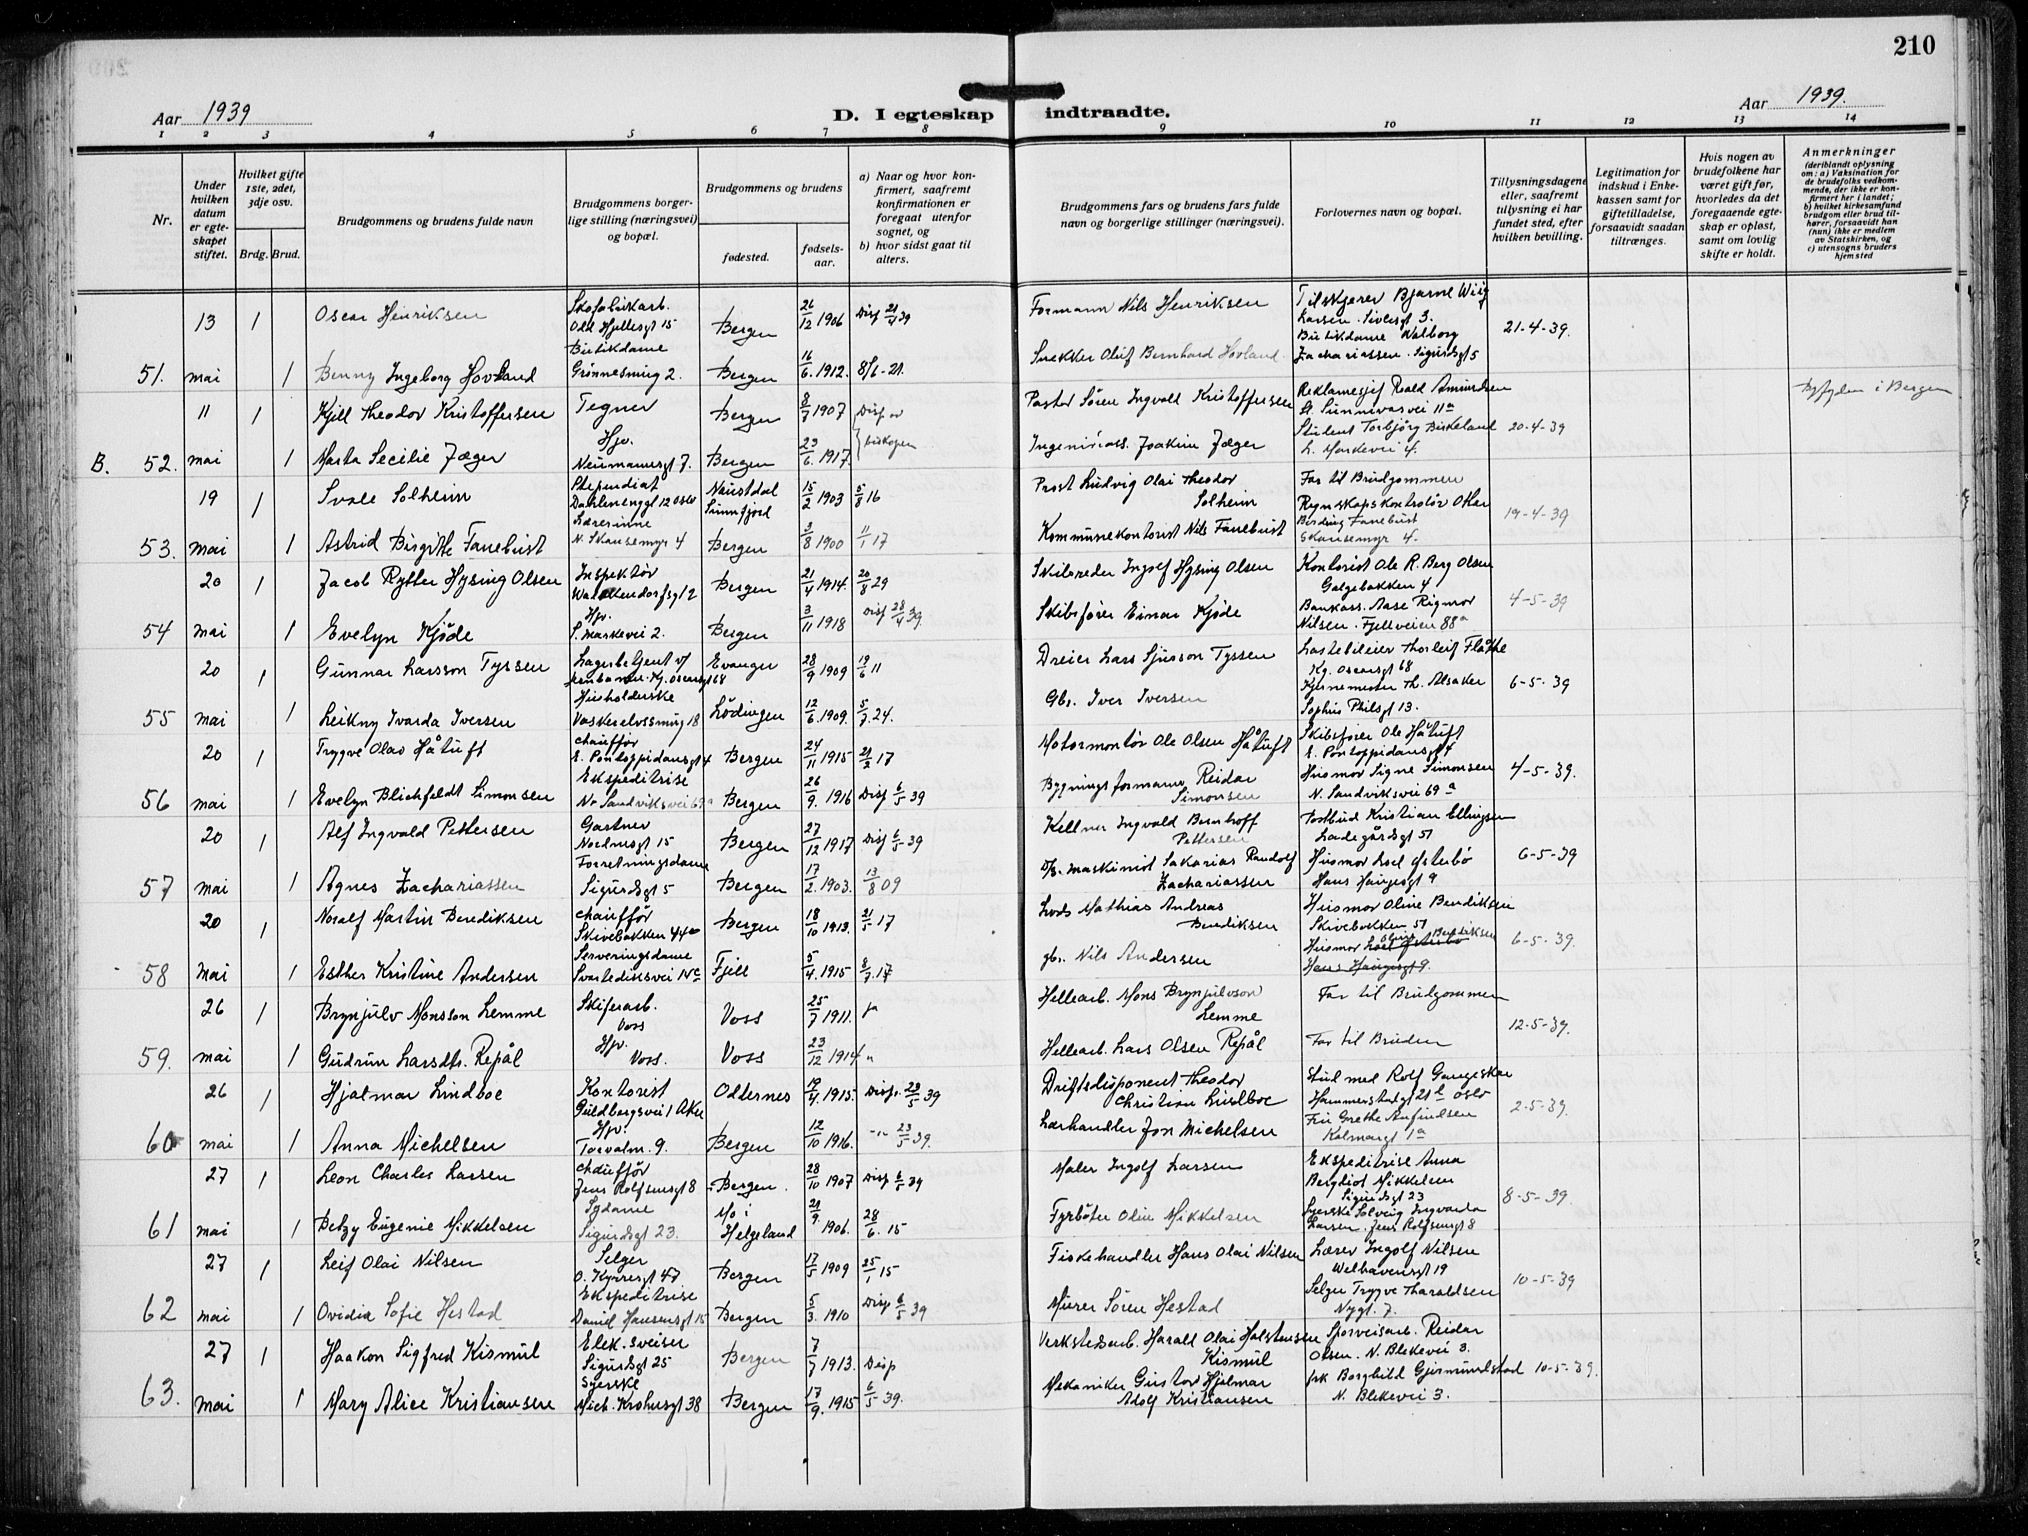 210
Aar 1939
D. I egteskap indtraadte.
Aar 1939.
1 2 3 4 5 6 7 8 9 10 11 12 13 14
Nr.
Under hvilken datum er egteskapet stiftet.
Hvilket gifte 1ste, 2det, 3dje osv.
Brdg. Brud.
Brudgommens og brudens fulde navn
Brudgommens borgerlige stilling (næringsvei) og bopæl.
Brudgommens og brudens
fødested.
fødselsaar.
a) Naar og hvor konfirmert, saafremt konfirmationen er foregaat utenfor sognet, og
b) hvor sidst gaat til alters.
Brudgommens fars og brudens fars fulde navn og borgerlige stillinger (næringsvei).
Forlovernes navn og bopæl.
Tillysningsdagene eller, saafremt tillysning ei har fundet sted, efter hvilken bevilling.
Legitimation for indskud i Enkekassen samt for giftetilladelse, forsaavidt saadan tiltrænges.
Hvis nogen av brudefolkene har været gift før, hvorledes da det foregaaende egteskap er opløst, samt om lovlig skifte er holdt.
Anmerkninger
(deriblandt oplysning om: a) Vaksination for de brudefolks vedkommende, der ikke er konfirmert her i landet; b) hvilket kirkesamfund brudgom eller brud tilhører, forsaavidt han (hun) ikke er medlem av Statskirken, og c) utensogns bruders hjemsted
13 1 Oscar Henriksen Skofabrikarb. Bergen 26/12 1906 Disp 21/4 39 Formann Nils Henriksen Tilskjærer Bjarne Wiig
Odd Hjellesgt 15 Larsen. Sivlesgt 3. 21-4-39.
Butikdame Butikdame Valborg
51. mai 1 Benny Ingeborg Hovland Grönnesmug 2. Bergen 16/6 1912. 8/1-21. Snekker Oluf Bernhard Hovland Zachariassen. Sigurdsgt 5
11 1 Kjell Theodor Kristoffersen Tegner Bergen 8/7 1907 Disp av Pastor Sören Ingvald Kristoffersen Reklamesjef Roald Amundsen
St. Sunnivasvei 11a Bergen
Hjv. biskopen Student Torbjörg Birkeland 20-4-39
B. 52. mai 1 Marta Secilie Jæger Neumannsgt 7. Bergen 23/6 1917. Ingeniörass. Joakim Jæger L. Markevei 4.
19 1 Svale Solheim Stipendiat Naustdal 15/2 1903 5/8 16 Prost Ludvig Olai Theodor Far til Brudgommen
Dahlenenggt 12 Oslo Sunnfjord Solheim Regnskapskontrolør Otter
Lærerinne Birding Fanebust 19-4-39
53. mai 1 Astrid Birgitte Fanebust N. Skansemyr 4 Bergen 3/8 1900 11/1 17 Kommunekontorist Nils Fanebust Skansemyr 4.
20 1 Jacob Rytter Hysing Olsen Inspektör Bergen 21/4 1914. 20/8 29 Skibsreder Ingolf Hysing Olsen Kontorist Ole R. Berg Olsen
Walckendorfsgt 2 Galgebakken 4
Hjv. Bankass. Aase Rigmor 4-5-39
54 mai 1 Evelyn Kjöde S. Markevei 2. Bergen 3/11 1918 Disp 28/4 39. Skibsförer Einar Kjöde Nilsen. Fjellveien 88a
20 1 Gunnar Larsson Tyssen Lagerbetjent v/ Evanger 28/9 1909 19/6 11 Dreier Lars Sjursson Tyssen Lastebileier Thorleif Flåthe
Jernbanen. Kg. Oscarsgt 68 Kg. Oscarsgt 68
Husholderske Kjernemester Th. Alsaker 6-5-39
55 mai 1 Leikny Ivarda Iversen Vaskerelvssmug 18 Lödingen 12/6 1909. 5/7.24. Gbr. Iver Iversen Sophus Philsgt 13.
20 1 Trygve Olav Håtuft Chaufför Bergen 24/11 1915 21/2 17 Motormontör Ole Olsen Håtuft Skibsförer Ole Håtuft
E. Pontoppidansgt 4 E. Pontoppidansgt 4
Ekspeditrise Husmor Signe Simonsen 4-5-39.
56 mai 1 Evelyn Blichfeldt Simonsen N. Sandviksvei 69a Bergen 26/9. 1916 Disp 6/5 39 Bygningsformann Reidar Simonsen N. Sandviksvei 69a
20 1 Alf Ingvald Pettersen Gartner Bergen 27/12 1917 Disp 6/5-39 Kellner Ingvald Bernhoff Pettersen Postbud Kristian Ellingsen
Nordnesgt 15 Ladegårdsgt 51
Forretningsdame Husmor Lael Østerbö 6-5-39
57 mai 1 Agnes Zachariassen Sigurdsgt 5 Bergen 17/2. 1903. 13/8 09 D/s. maskinist Sakarias Randolf Zachariassen Hans Haugesgt 9
20 1 Noralf Martin Bendiksen Chaufför Bergen 18/10 1913. 21/5 17 Lods Mathias Andreas Bendiksen Husmor Oline Bendiksen
Skivebakken 44a Skivebakken 51
Serveringsdame Husmor Lael Østerbö Bendiksen 6-5-39.
58 mai 1 Esther Kristine Andersen Svartediksvei 14c Fjell 5/4. 1915 8/7.17 gbr. Nils Andersen Hans Haugesgt 9.
26 1 Brynjulv Monsson Lemme Skiferarb. Voss 25/7 1911. ja Hellearb. Mons Brynjulvson Lemme Far til Brudgommen
Voss 12-5-39.
Hjv.
59. mai 1 Gudrun Larsdtr. Repål Voss. Voss 23/12 1914 " Hellearb. Lars Olsen Repål Far til Bruden
26 1 Hjalmar Lindboe Kontorist Odternes 19/4. 1915. Disp. 23/5 39 Driftsdisponent Theodor Christian Lindboe Stud med Rolf Gangeskar
Guldbergsvei 1 Aker Hammerstadgt 21 b Oslo
Hjv. Fru Grethe Anfindsen 2-5-39.
60 mai 1 Anna Michelsen Torvalm. 9. Bergen 12/10 1916. -"- 23/5 39. Lærhandler Jon Michelsen Kalmargt 1a
27 1 Leon Charles Larsen Chaufför Bergen. 28/10 1907 Disp 6/5 39 Maler Ingolf Larsen Ekspeditrise Anna
Jens Rolfsensgt 8 Bergliot Mikkelsen
Sydame Mo i Sigurdsgt 23 8-5-39.
61 mai 1 Betzy Eugenie Mikkelsen Sigurdsgt 23. Helgeland 21/9. 1906. 28/6. 15 Fyrböter Olin Mikkelsen Syerske Solveig Ingvarda
Larsen. Jens Rolfsensgt 8
27 1 Leif Olai Nilsen Selger Bergen 17/5 1909 25/1 15 Fiskehandler Hans Olai Nilsen Lærer Ingolf Nilsen
O. Kyrresgt 47 Welhavensgt 19
Ekspeditrise Selger Trygve Tharaldsen 10-5-39
62 mai 1 Ovidia Sofie Hestad Daniel Hansensgt 15 Bergen 5/3. 1910 Disp 6/5 39 Murer Sören Hestad Nygt. 7.
27 1 Haakon Sigfred Kismul Elek. sveiser Bergen 7/7 1913. Disp Verkstedsarb. Harald Olai Halstensen Kismul Sporveisarb. Reidar
Sigurdsgt 25 Olsen. N. Blekevei 3.
Syerske frk Borghild Gjermundstad 10-5-39.
63. mai 1 Mary Alice Kristiansen Mich. Krohnsgt 38 Bergen 17/9. 1915 6/5 39. Mekaniker Gustav Hjalmar Adolf Kristiansen N. Blekevei 3.